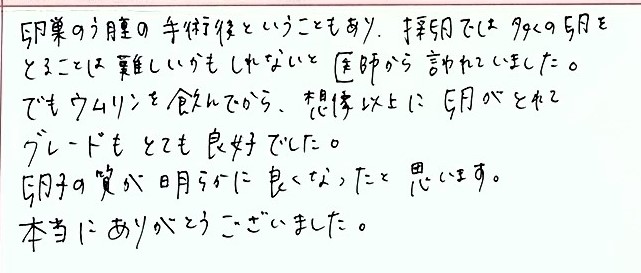 卵巣のう腫の手術後ということもあり、採卵では多くの卵を
とることは難しいかもしれないと医師から言われていました。
でもウムリンを飲んでから、想像以上に卵がとれて
グレードもとても良好でした。
卵子の質が明らかに良くなったと思います。
本当にありがとうございました。